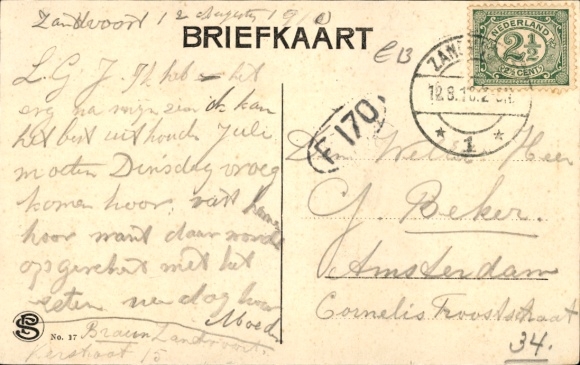 Zandvoort 12 Augustus 1910
BRIEFKAART
E 13
NEDERLAND
2½
(2½ CENT)
ZAN
12.8.10.2
1
F 170
L. G. J. Ik heb het
erg na mijn zin ik kan
het best uithouden Julie
moeten Dinsdag vroeg
komen hoor
hoor want daar wordt
op gerekent met het
eten nu dag hoor
Moeder
No. 37 Braun Zandvoort
Kerkstraat 15
Den Wel Heer
G. Beker.
Amsterdam
Cornelis Trooststraat
34.